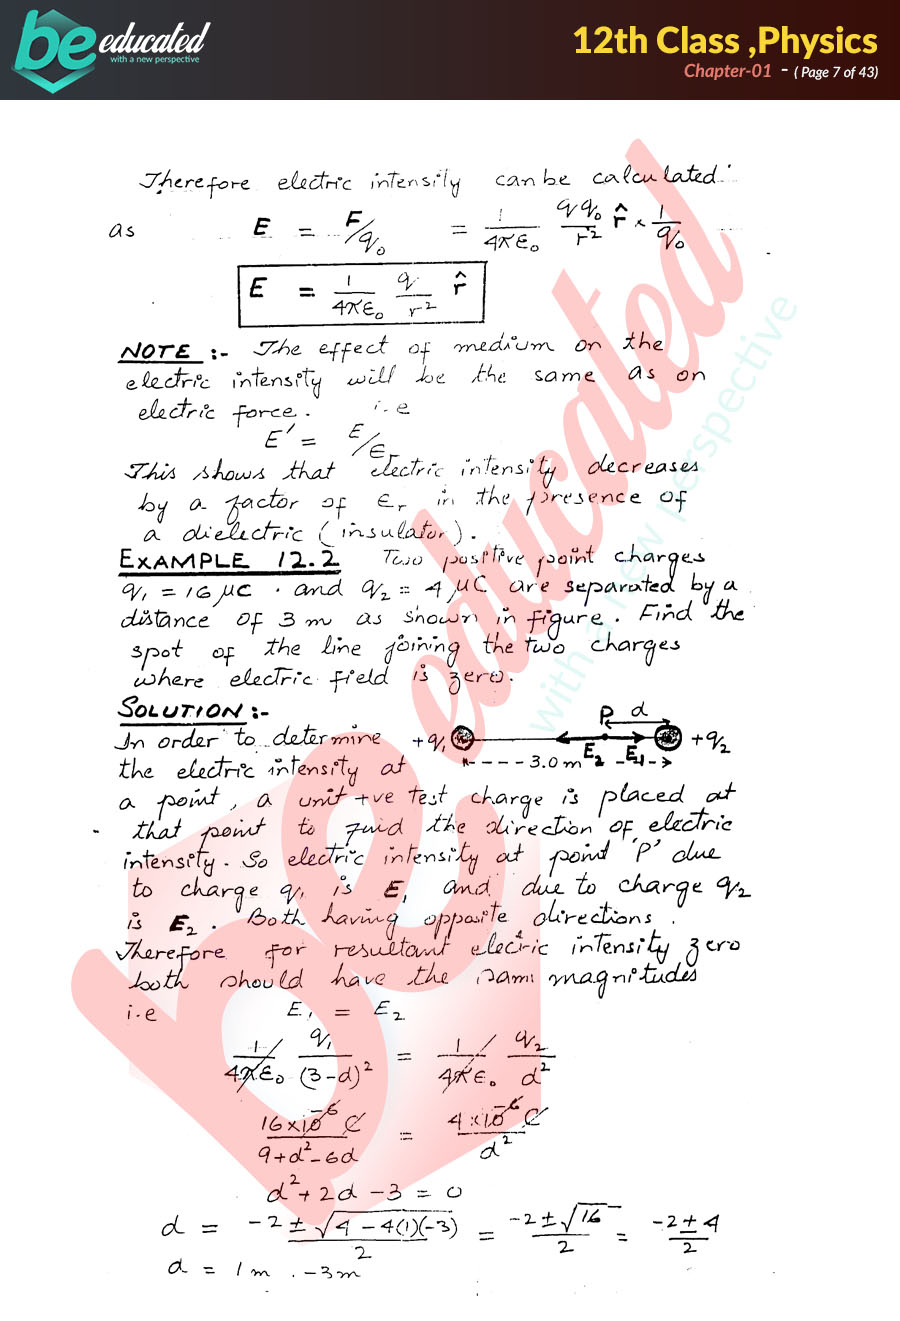 be educated
with a new perspective
12th Class ,Physics
Chapter-01 - ( Page 7 of 43)
Therefore electric intensity can be calculated
as E = F/q₀ = 1/4πε₀ qq₀/r² r̂ × 1/q₀
E = 1/4πε₀ q/r² r̂
NOTE :- The effect of medium on the
electric intensity will be the same as on
electric force. i.e
E' = E/εr
This shows that electric intensity decreases
by a factor of εr in the presence of
a dielectric (insulator).
EXAMPLE 12.2 Two positive point charges
q₁ = 16 μC . and q₂ = 4 μC are separated by a
distance of 3 m as shown in figure. Find the
spot of the line joining the two charges
where electric field is zero.
SOLUTION :-
P d
In order to determine +q₁ E₂ E₁ +q₂
the electric intensity at 3.0 m
a point, a unit +ve test charge is placed at
that point to find the direction of electric
intensity. So electric intensity at point 'P' due
to charge q₁ is E₁ and due to charge q₂
is E₂. Both having opposite directions.
Therefore for resultant electric intensity zero
both should have the same magnitudes
i.e E₁ = E₂
1/4πε₀ q₁/(3-d)² = 1/4πε₀ q₂/d²
16×10⁻⁶ C/9+d²-6d = 4×10⁻⁶ C/d²
d² + 2d - 3 = 0
d = -2 ± √4 - 4(1)(-3)/2 = -2 ± √16/2 = -2 ± 4/2
d = 1m . -3m
be educated
with a new perspective